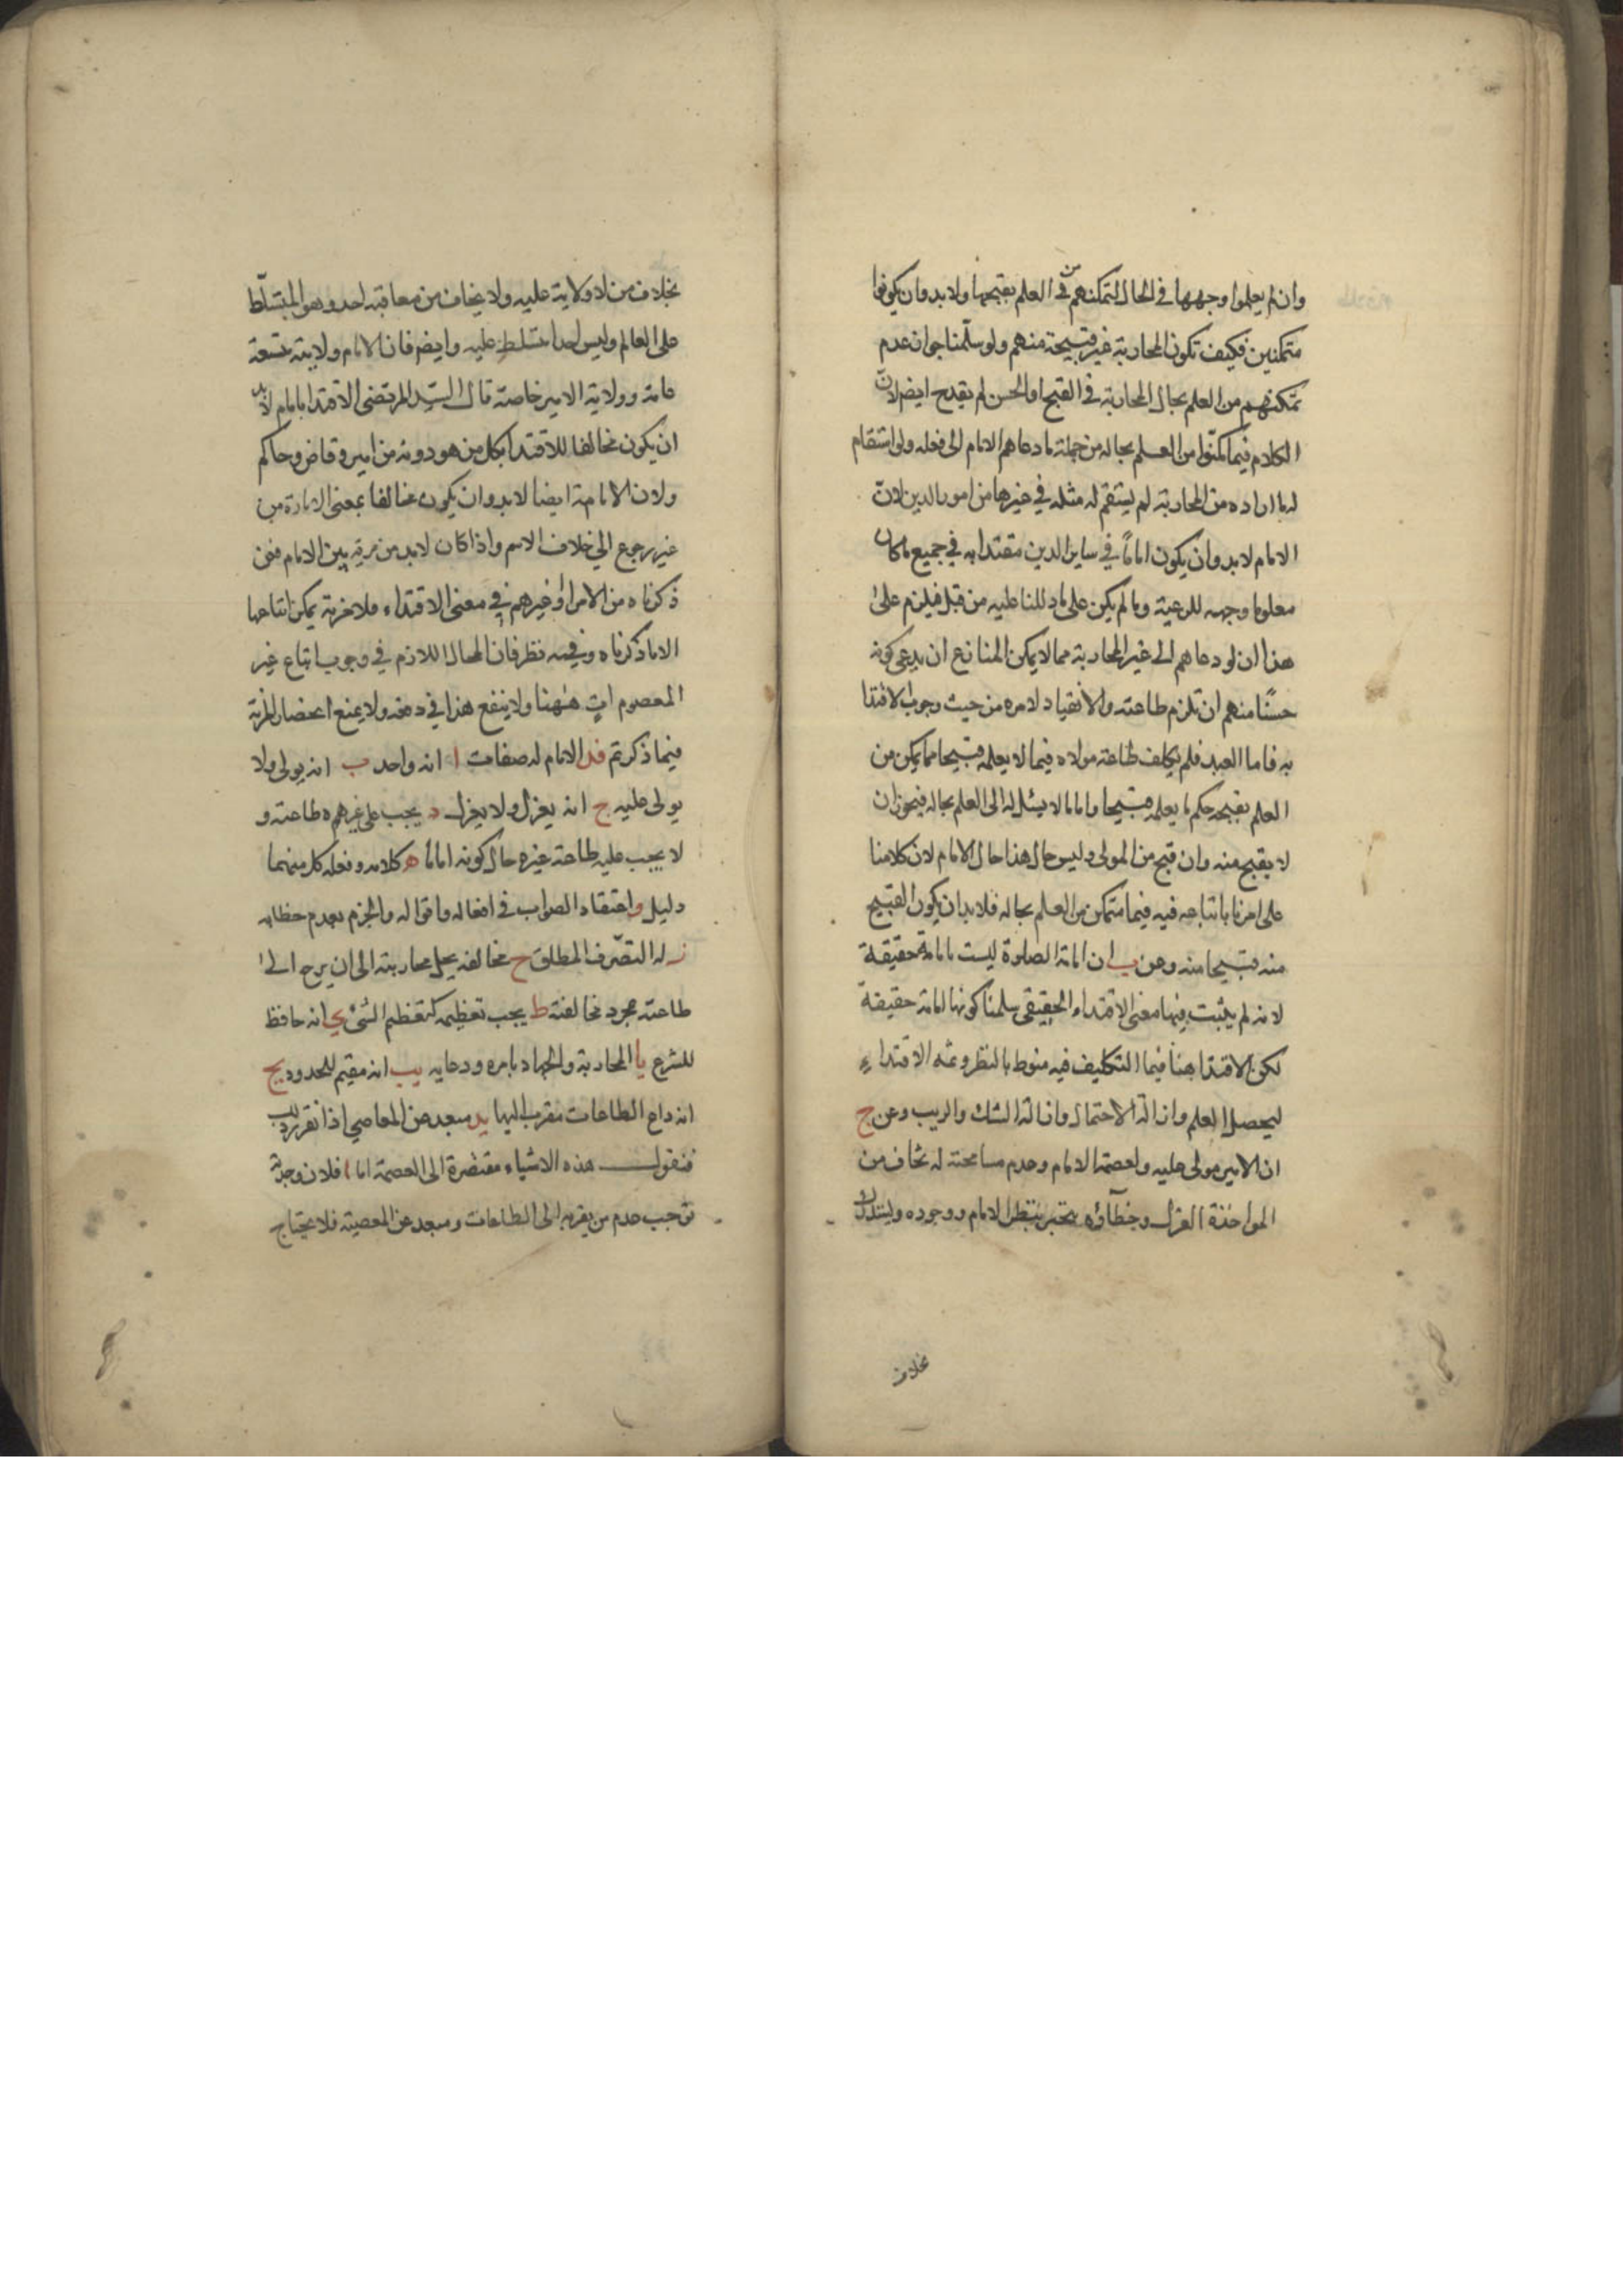 وان لم يعلموا وجهها في الحال لتمكنهم من العلم بقبحها ولا بد وان يكونوا
متمكنين فكيف تكون المحاربة غير قبيحة منهم ولو سلّمنا جواز عدم
تمكنهم من العلم بحال المحاربة في القبح او الحسن لم يقدح ايضا لانّ
الكلام فيما تمكنّوا من العلم بحاله من جملة ما دعاهم الامام الى فعله ولو استقام
له ما اراده من المحاربة لم يستقم له مثله في غيرها من امور الدين لانّ
الامام لا بد وان يكون اماماً في ساير الدين مقتدا به في جميع ما كان
معلوما وجهه للرعية وما لم يكن على ما دللنا عليه من قبل فيلزم على
هذا ان لو دعاهم الى غير المحاربة مما لا يمكن المنازع ان يدعى كونه
حسنًا منهم ان تلزم طاعته والانقياد لامره من حيث وجوب الاقتدا
به فاما العبد فلم يكلف طاعة مولاه فيما لا يعلمه قبيحا مما يمكن من
العلم بقبحه حكم ما يعلمه قبيحا واما ما لا سبيل له الى العلم بحاله فيجوز ان
لا يقبح منه وان قبح من المولى وليس حال هذا حال الامام لان كلامنا
على امرنا باتباعه فيه فيما متمكن من العلم بحاله فلا بد ان يكون القبيح
منه قبيحا منه وعن ب ان امامة الصلوة ليست بامامة حقيقة
لانه لم يثبت فيها معنى الاقتداء الحقيقى سلمنا كونها امامة حقيقة
لكن الاقتدا هنا فيما التكليف فيه منوط بالنظر وثمه الاقتداء
ليحصل العلم وازالة الاحتمال وازالة الشك والريب وعن ج
ان الامير مولى عليه ولعصمة الامام وعدم مسامحته له يخاف من
المواخذة العزل وخطاؤه ينجبر بنظر الامام ووجوده ويستدل
بخلاف
بخلاف من لا ولاية عليه ولا يخاف من معاقبة احد وهو المتسلّط
على العالم وليس احدا متسلط عليه وايضا فان الامام ولايته متسعة
عامة وولاية الامير خاصة قال السيّد المرتضى الاقتدا بالامام لا بد
ان يكون مخالفا للاقتدا بكل من هو دونه من امير وقاض وحاكم
ولان الامامة ايضا لا بد وان يكون مخالفا بمعنى الامارة من
غير رجوع الى خلاف الاسم واذا كان لا بد من مزية بين الامام فمن
ذكرناه من الامرا وغيرهم في معنى الاقتداء فلا مزية يمكن اثباتها
الا ما ذكرناه وفيه نظر فان المحال اللازم في وجوب اتباع غير
المعصوم اتٍ ههنا ولا ينفع هذا في دفعه ولا يمنع انحصار المزية
فيما ذكرتم فد الامام له صفات ا انه واحد ب انه يولى ولا
يولى عليه ج انه يعزل ولا يعزل د يجب على غيره طاعته و
لا يجب عليه طاعة غيره حال كونه اماما ه كلامه وفعله كل منهما
دليل و اعتقاد الصواب في افعاله واقواله والجزم بعدم خطائه
ز له التصّرف المطلق ح مخالفه يحل محاربته الى ان يرجع الى
طاعته بمجرد مخالفته ط يجب تعظيمه كتعظيم النبىّ ي انه حافظ
للشرع يا المحاربة والجهاد بامره ودعايه يب انه مقيم للحدود يج
انه داع الطاعات مقرب اليها يد مبعد عن المعاصي اذا تقرر ذلك
فنقول هذه الاشياء مقتضرة الى العصمة اما ا فلان وحدته
توجب عدم من يقربه الى الطاعات ومبعد عن المعصية فلا يحتاج